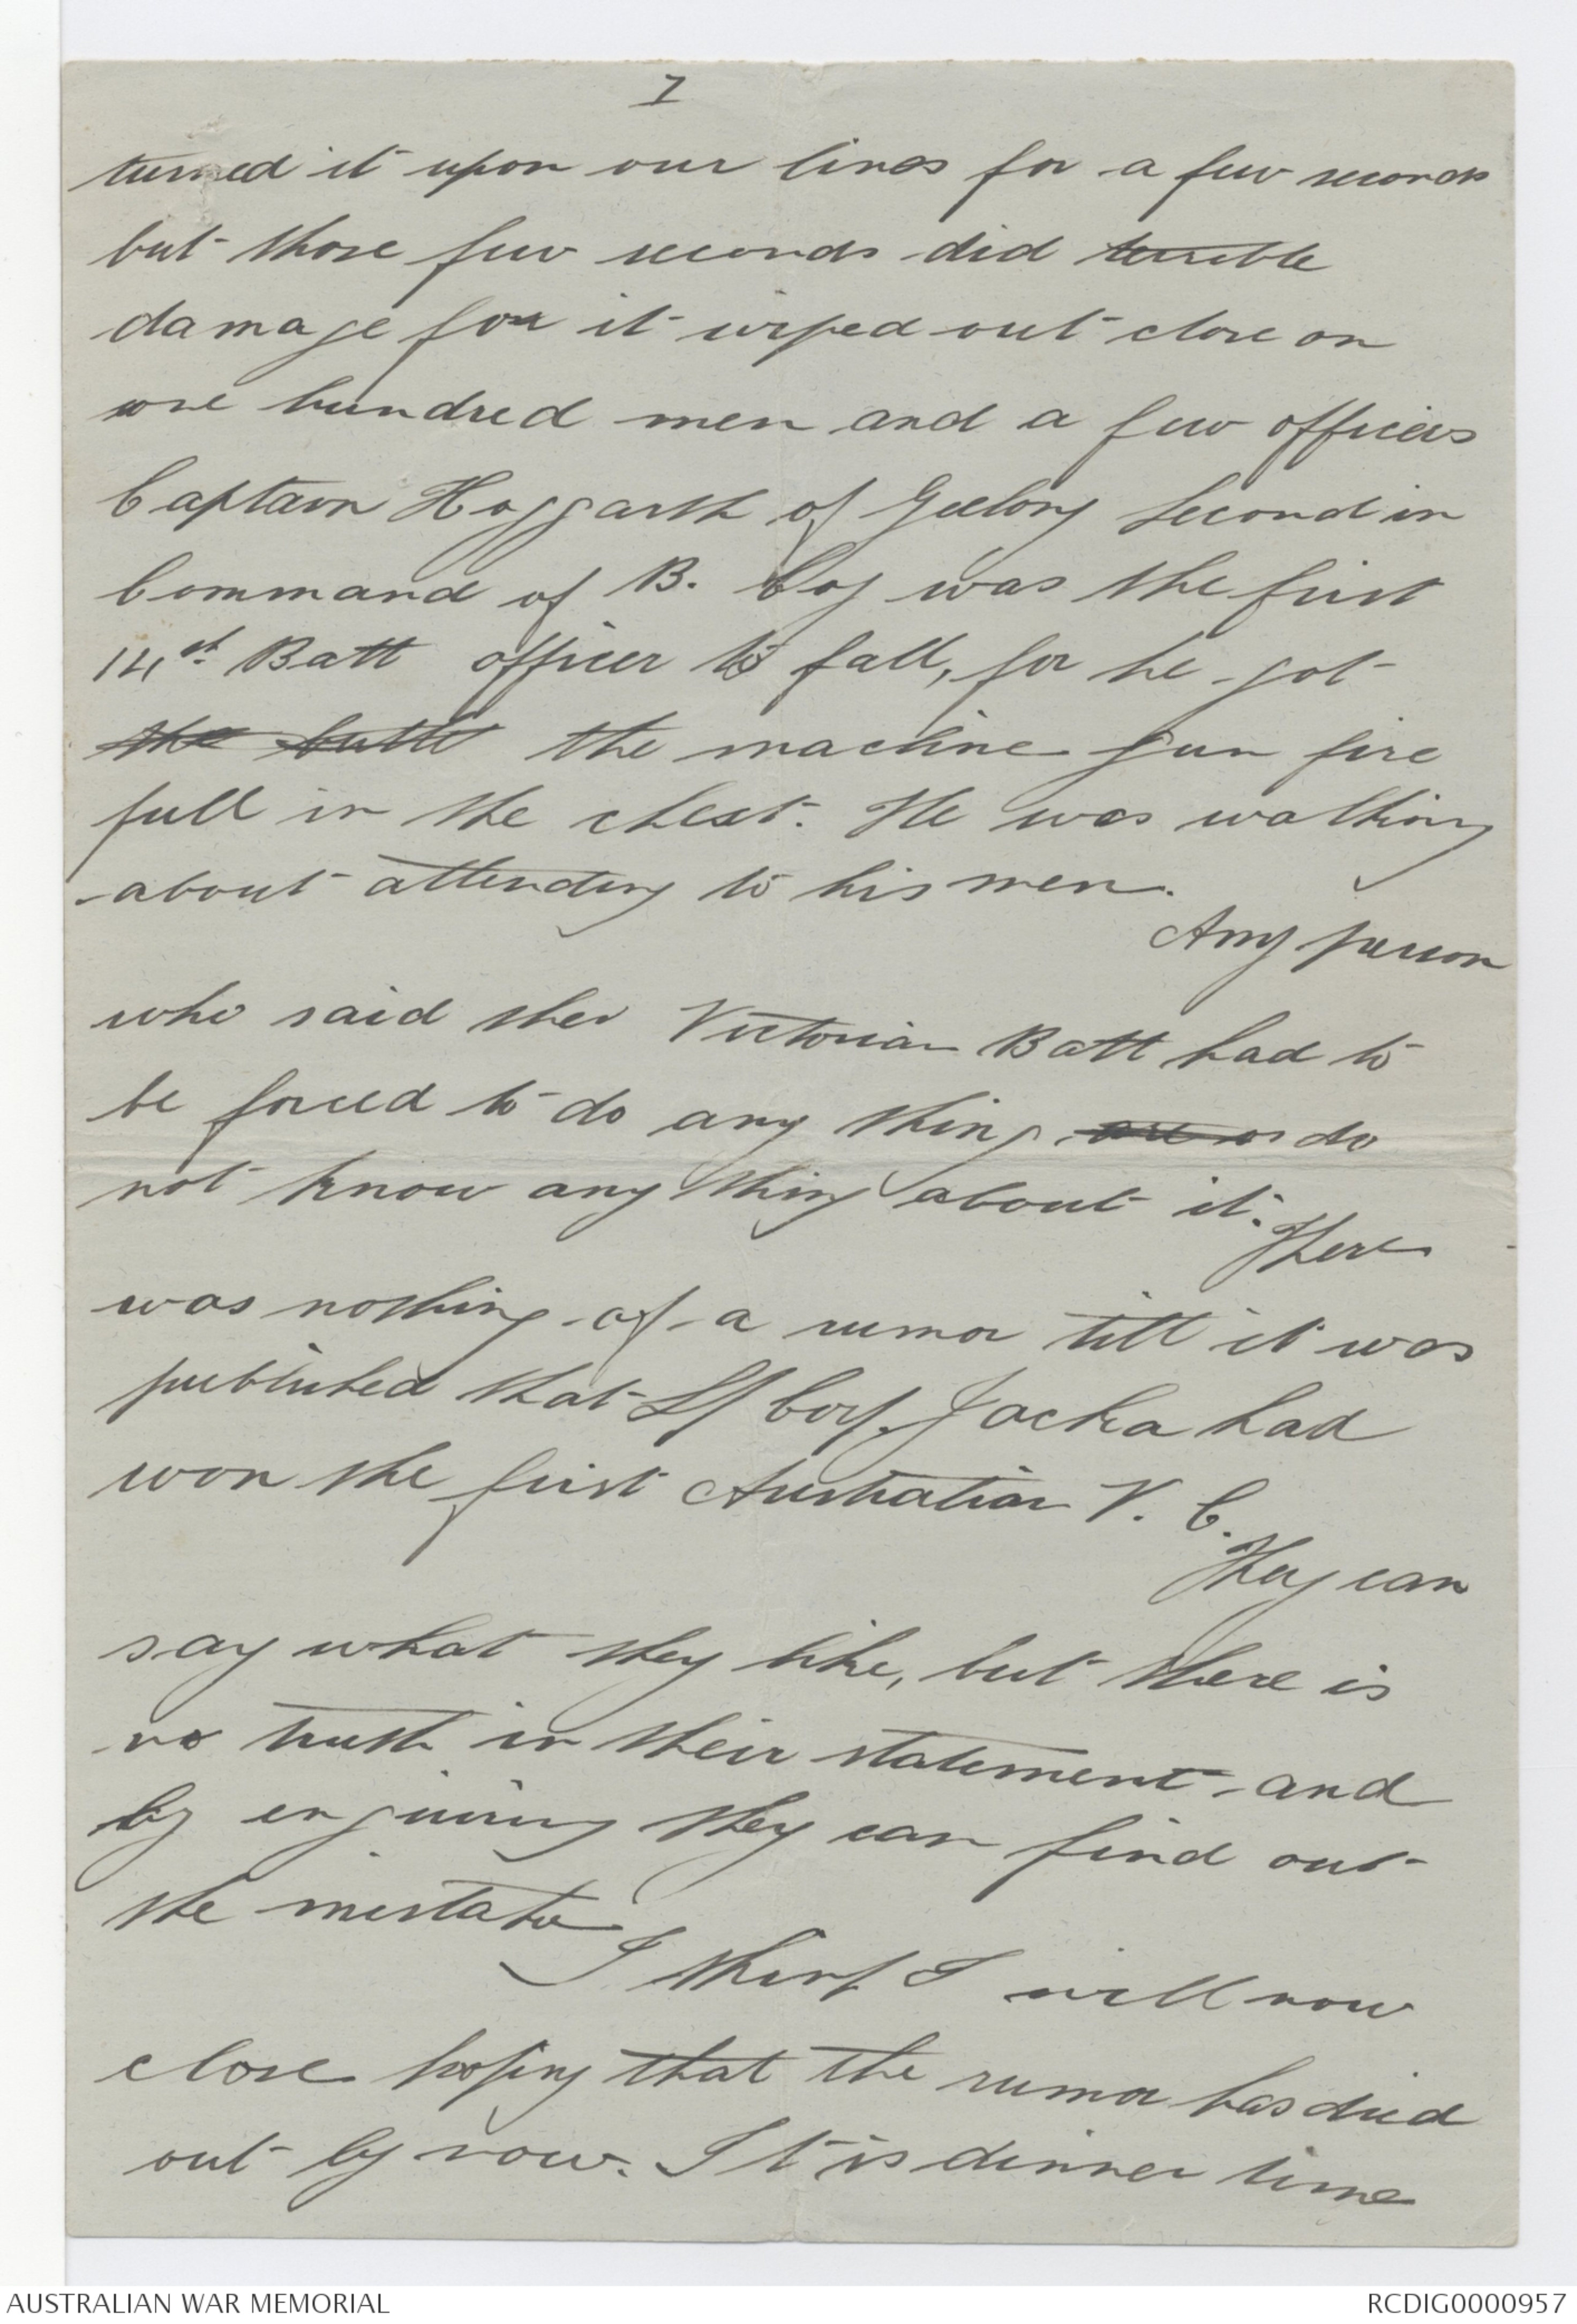 7
turned it upon our lines for a few seconds
but those few seconds did terrible
damage for it wiped out close on
one hundred men and a few officers
Captain Hoggarth of Geelong second in
Command of B. Coy was the first
14st. Batt officer to fall, for he got
the bullet the machine gun fire
full in the chest. He was walking
about attending to his men.
Any person
who said the Victorian Batt had to
be forced to do any thing do
not know any thing about it. There
was nothing of a rumor till it was
published that L/Corp. Jacka had
won the first Australian V. C.
They can
say what they like, but there is
no truth in their statement and
by enquiring they can find out
the mistake
I think I will now
close hoping that the rumor has died
out by now. It is dinner time
AUSTRALIAN WAR MEMORIAL
RCDIG0000957